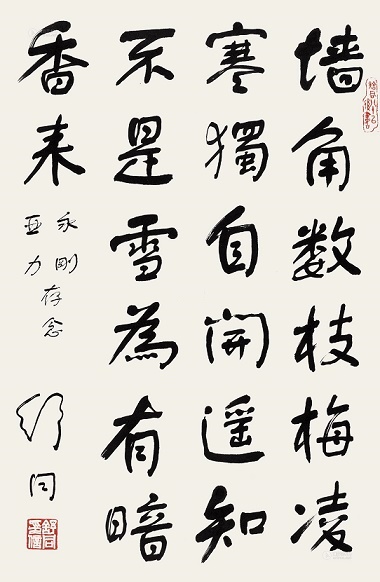 墙角数枝梅凌
寒獨自開遥知
不是雪為有暗
香来
永剛
亚力
存念
舒同